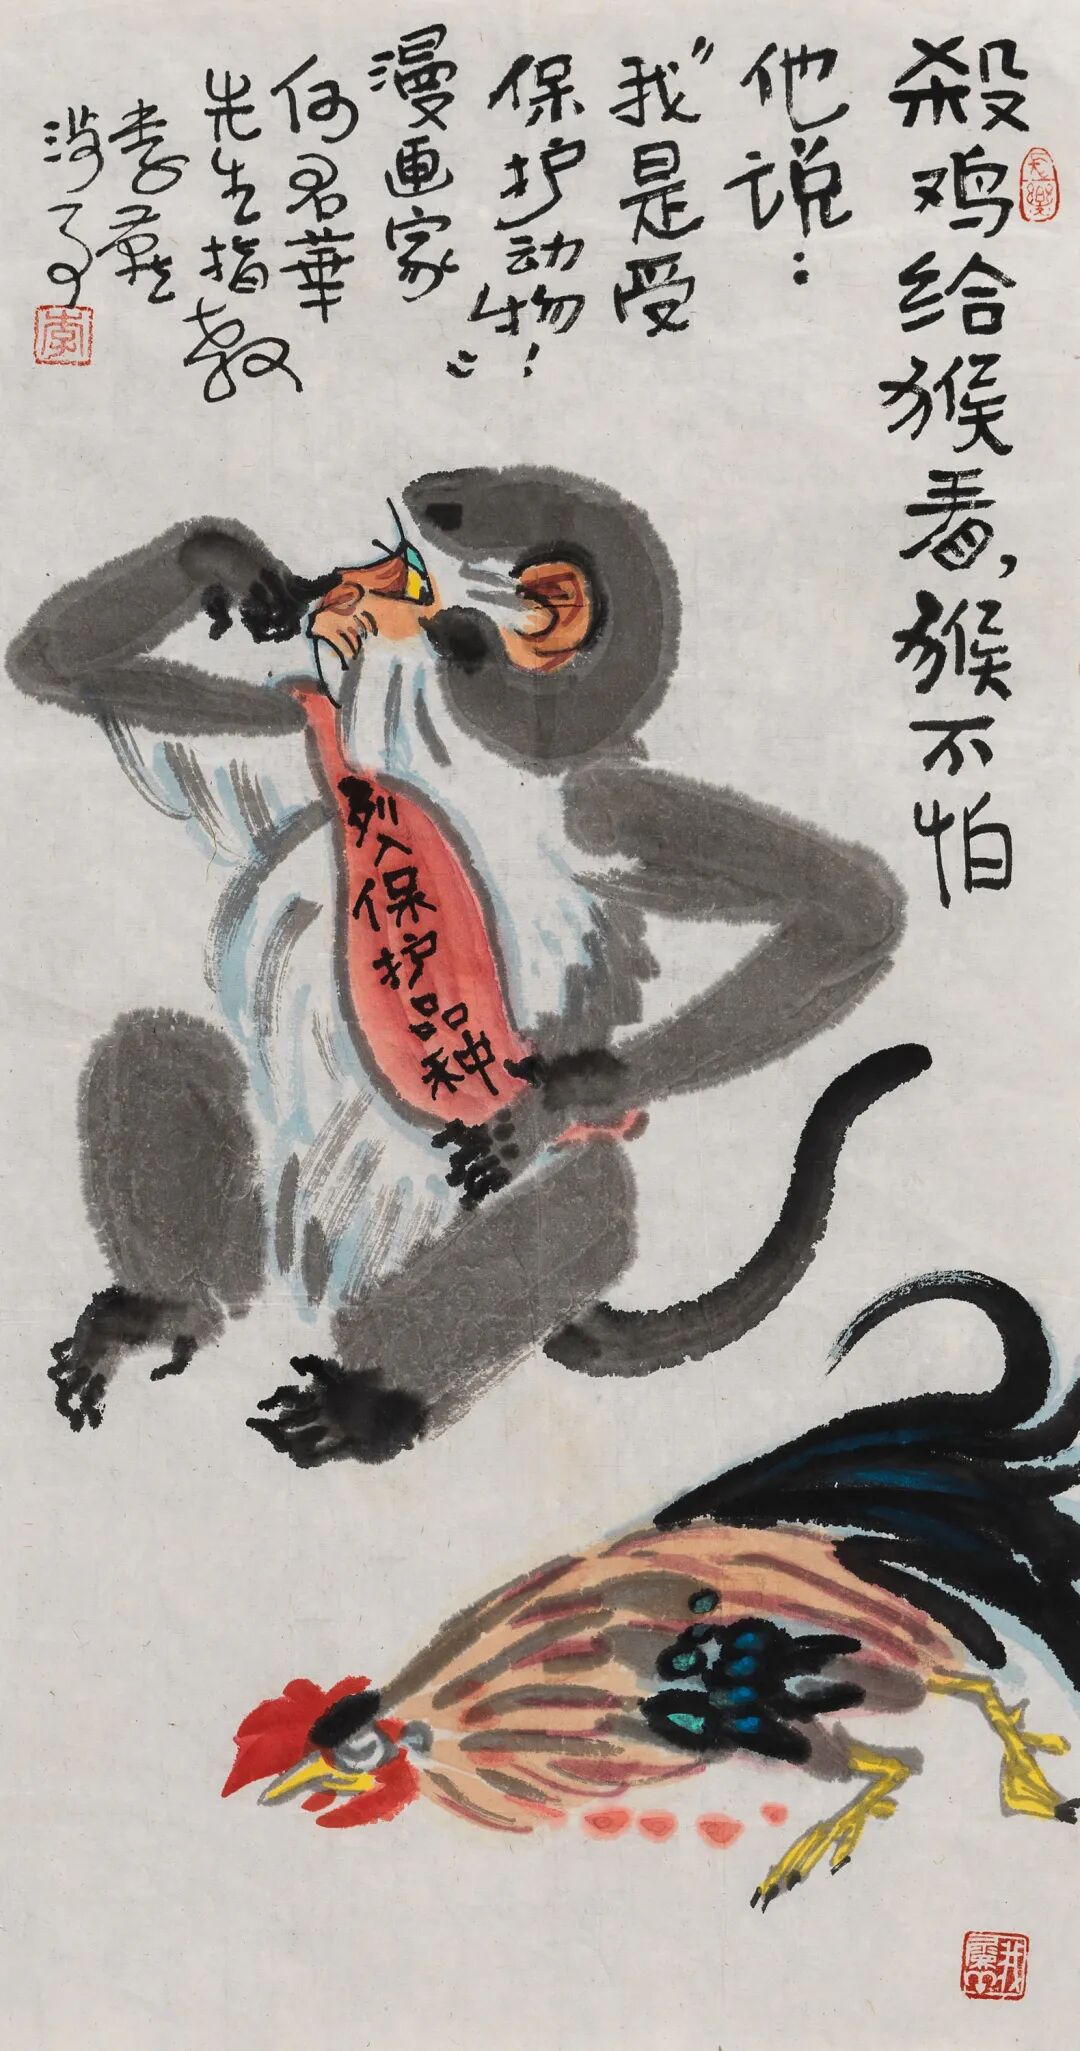 殺鸡给猴看,猴不怕
他说:
"我是受
保护动物!"
漫画家
何君華
先生指教
李燕
列入保护品种